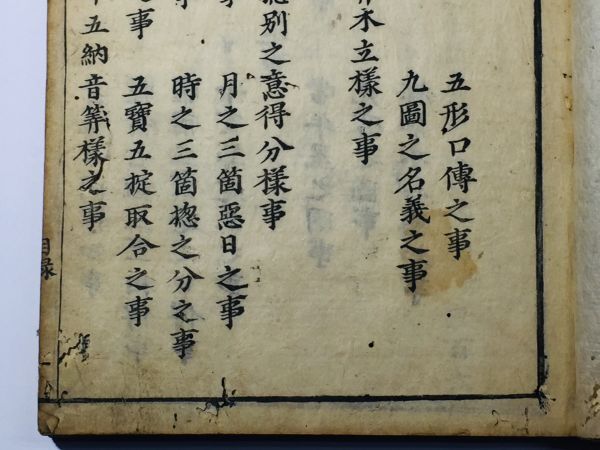 五形口傳之事
九圖之名義之事
木立樣之事
別之意得分樣事
月之三箇惡日之事
時之三箇揔之分之事
事
五寶五掟取合之事
五納音算樣之事
目録